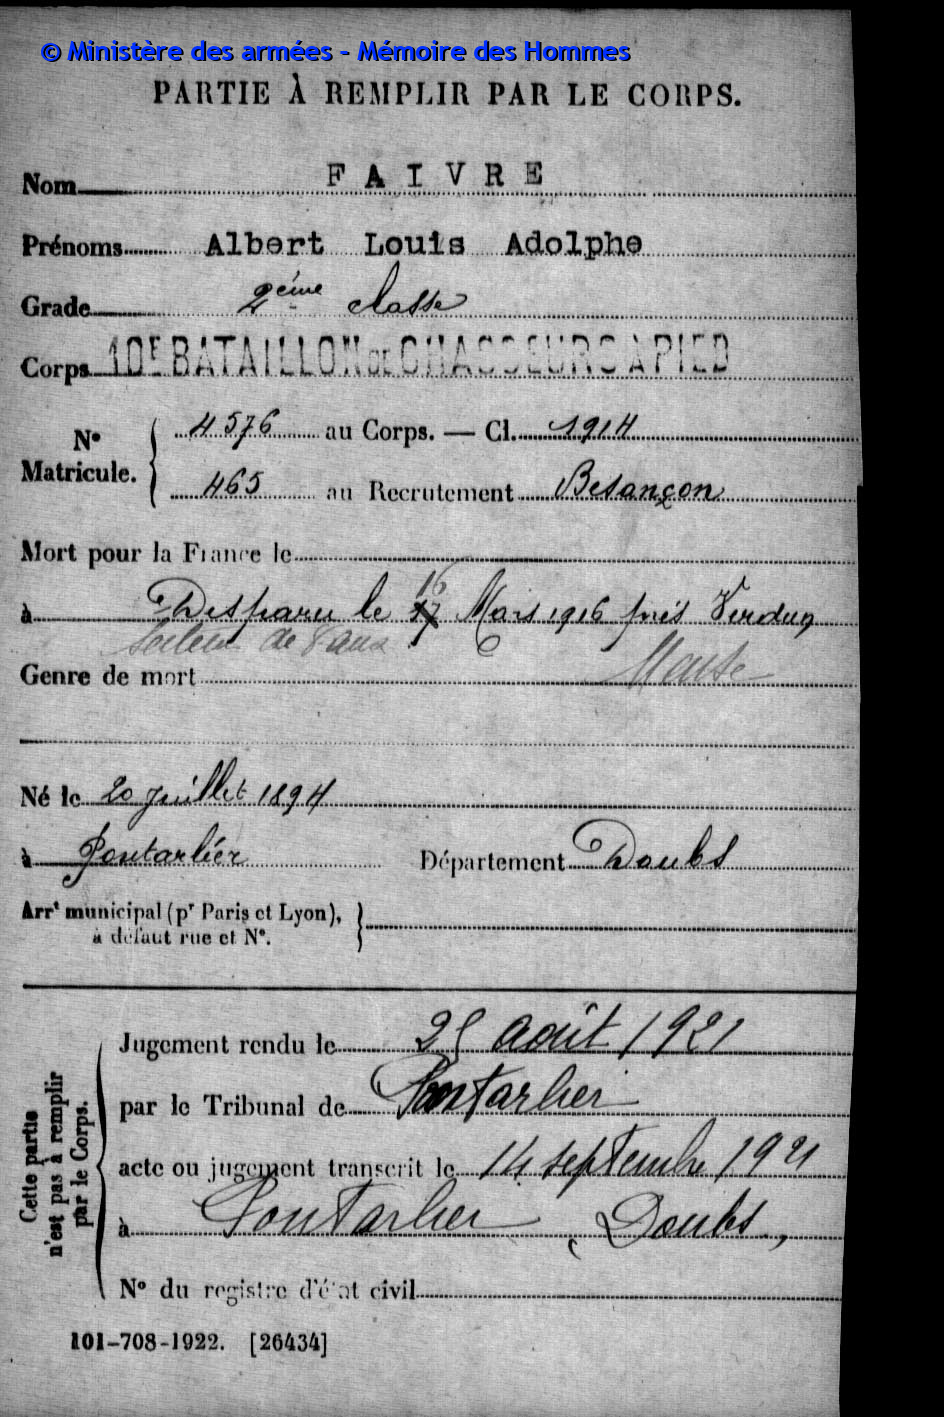 © Ministère des armées - Mémoire des Hommes
PARTIE À REMPLIR PAR LE CORPS.
Nom FAIVRE
Prénoms Albert Louis Adolphe
Grade 2ème classe
Corps 10E BATAILLON DE CHASSEURS A PIED
No Matricule. { 4576 au Corps. — Cl. 1914
465 au Recrutement Besançon
Mort pour la France le
16
à Disparu le 17 Mars 1916 près Verdun
secteur de Vaux Meuse
Genre de mort
Né le 20 Juillet 1894
à Pontarlier Département Doubs
Arrt municipal (pr Paris et Lyon),
à défaut rue et No.
Cette partie n'est pas à remplir par le Corps.
Jugement rendu le 25 août 1921
par le Tribunal de Pontarlier
acte ou jugement transcrit le 14 septembre 1921
à Pontarlier (Doubs,
No du registre d'état civil
101-708-1922. [26434]